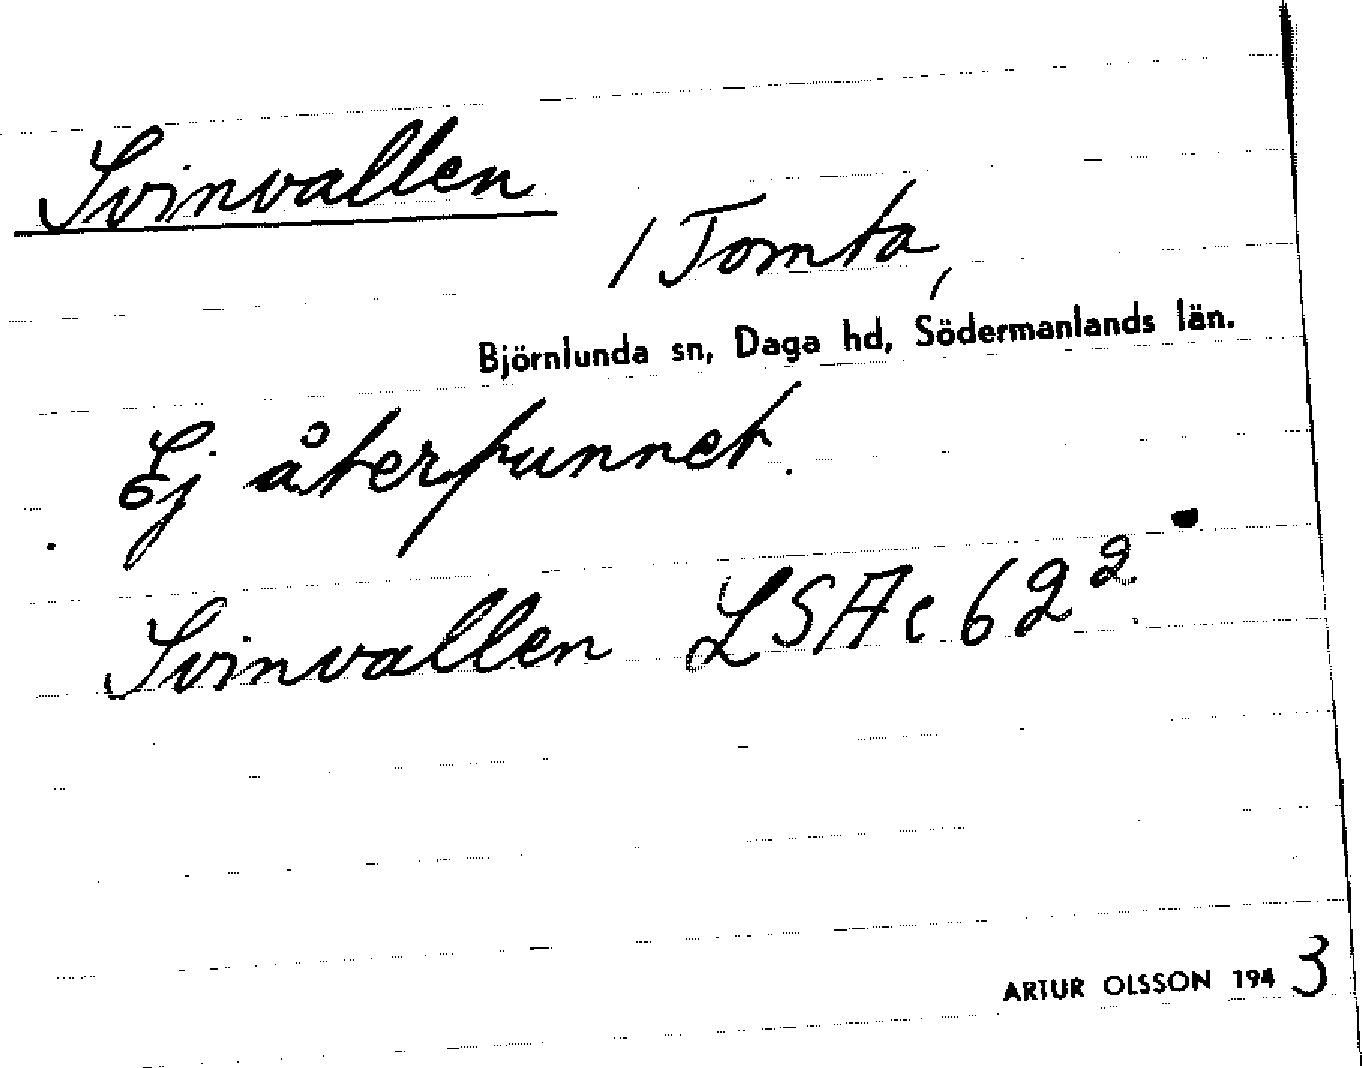 Svinvallen
/ Tomta,
Björnlunda sn, Daga hd, Södermanlands län.
Ej återfunnet.
Svinvallen LSA c 62²
ARTUR OLSSON 1943